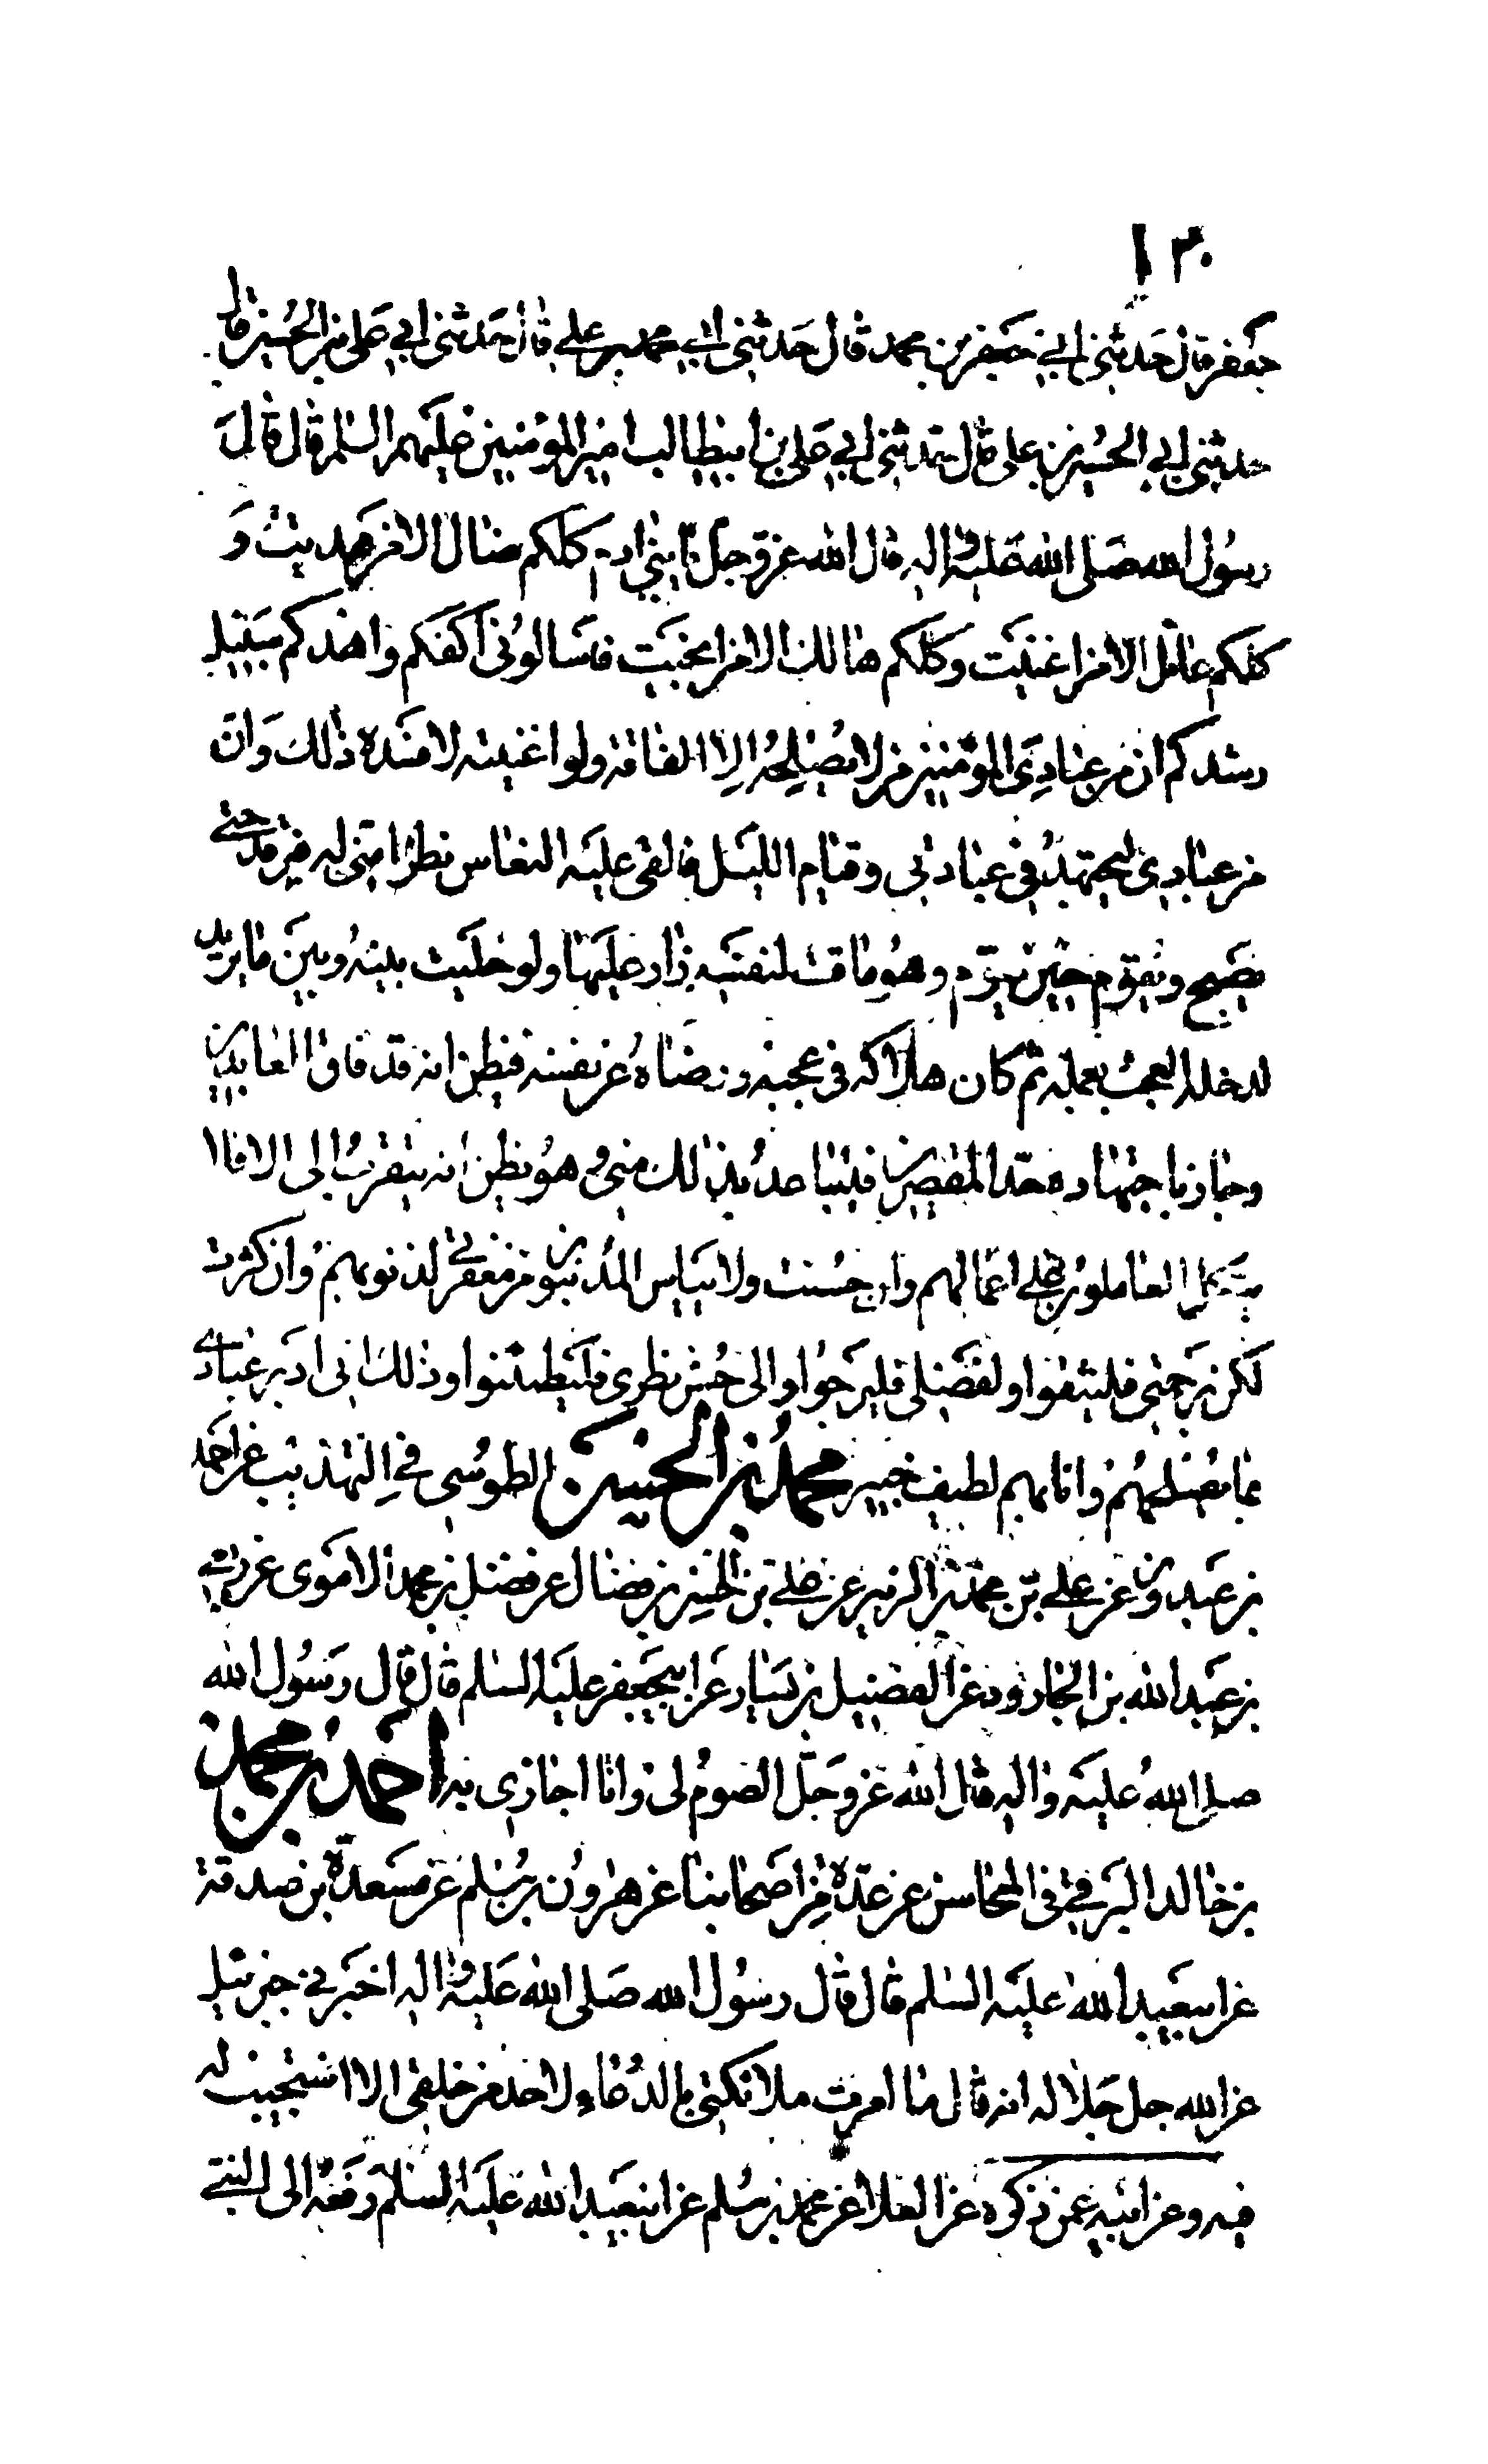 ١٣٠
جعفر قال حدثني ابي جعفر بن محمد قال حدثني ابي محمد بن علي قال حدثني ابي علي بن الحسين قال
حدثني ابي الحسين بن علي قال حدثني ابي علي بن ابيطالب امير المؤمنين عليهم السلم قال قال
رسول الله صلى الله عليه واله قال الله عز وجل يا بني ادم كلكم ضال الا من هديت و
كلكم عائل الا من اغنيت وكلكم هالك الا من انجيت فاسالوني اكفكم واهدكم سبيل
رشدكم ان من عبادي المؤمنين من لا يصلحه الا الفاقة ولو اغنيته لافسده ذلك وان
من عبادي لمن يجتهد في عبادتي وقيام الليل فالقي عليه النعاس نظرا مني له فيرقد حتى
يصبح ويقوم حين يقوم وهو ماقت لنفسه زار عليها ولو خليت بينه وبين ما يريد
لدخله العجب بعمله ثم كان هلاكه في عجبه ورضاه عن نفسه فيظن انه قد فاق العابدين
وجاز باجتهاده حد المقصرين فيتباعد بذلك مني وهو يظن انه يتقرب الي الا فلا
يتكل العاملون على اعمالهم وان حسنت ولا يياس المذنبون من مغفرتي لذنوبهم وان كثرت
لكن برحمتي فليثقوا ولفضلي فليرجوا والى حسن نظري فليطمئنوا وذلك اني ادبر عبادي
بما يصلحهم وانا بهم لطيف خبير محمد بن الحسن الطوسي في التهذيب عن احمد
بن عبدون عن علي بن محمد بن الزبير عن علي بن الحسن بن فضال عن فضل بن محمد الاموي عن ربعي
بن عبد الله بن الجارود عن الفضيل بن يسار عن ابيجعفر عليه السلم قال قال رسول الله
صلى الله عليه واله قال الله عز وجل الصوم لي وانا اجازي به احمد بن محمد
بن خالد البرقي في المحاسن عن عدة من اصحابنا عن هرون بن مسلم عن مسعدة بن صدقة
عن ابيعبد الله عليه السلم قال قال رسول الله صلى الله عليه واله اخبرني جبرئيل
عن الله جل جلاله انه قال ما امرت ملائكتي بالدعاء لاحد من خلقي الا استجيب له
فيه وعن ابيه عمن ذكره عن العلا عن محمد بن مسلم عن ابيعبد الله عليه السلم رفعه الى النبي